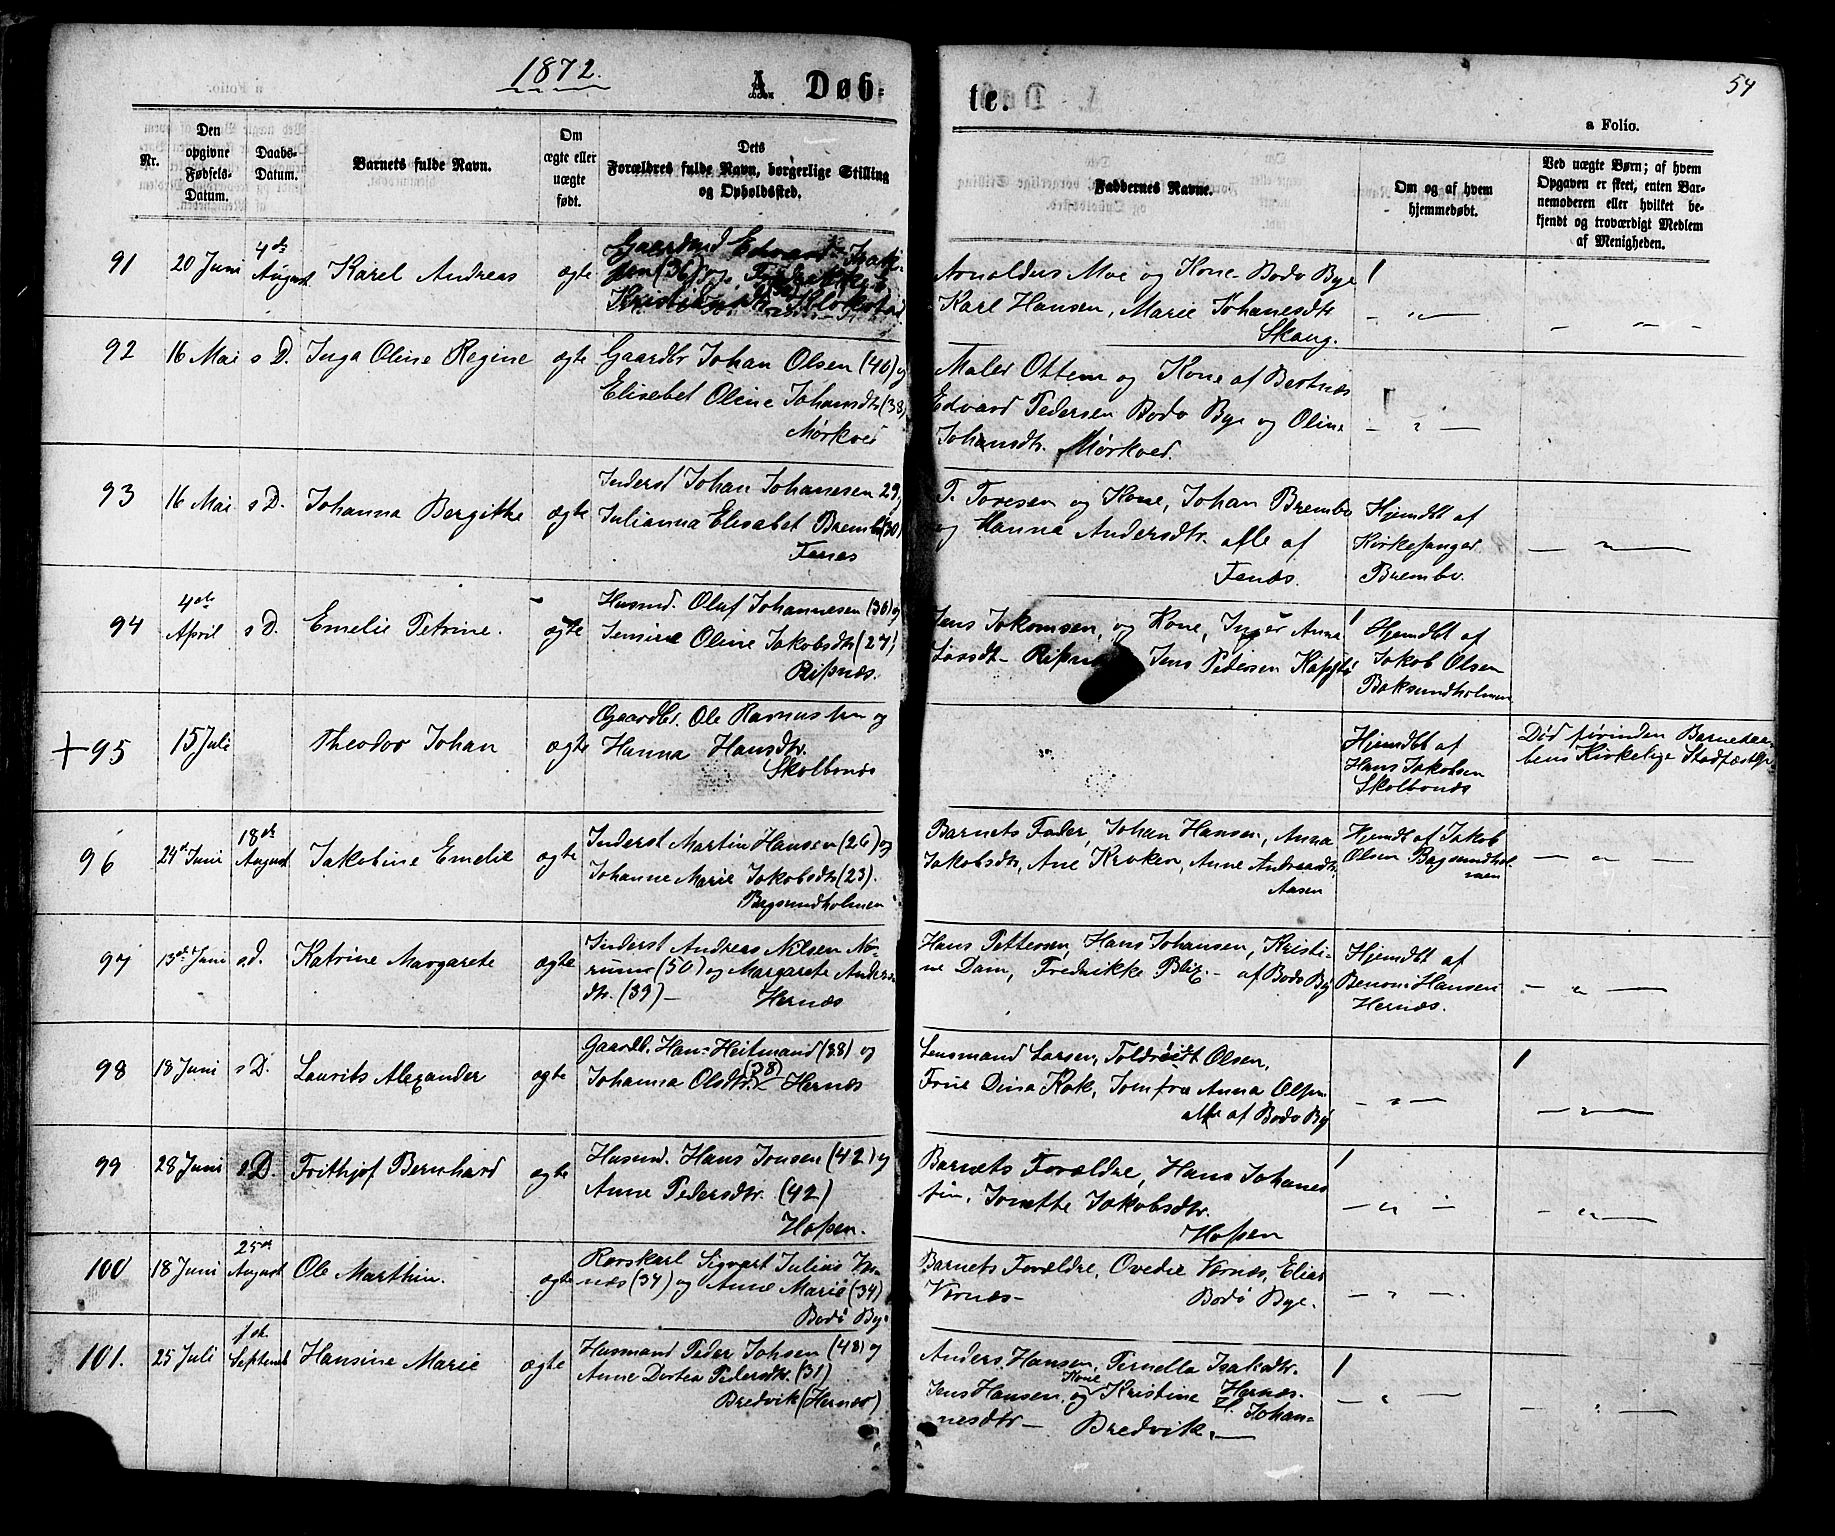 1872.
A. Døb-
te.
54
a Folio.
Nr.
Den opgivne Fødsels-Datum.
Daabs-Datum.
Barnets fulde Navn.
Om ægte eller uægte født.
Dets Forældres fulde Navn, borgerlige Stilling og Opholdssted.
Faddernes Navne.
Om og af hvem hjemmedøbt.
Ved uægte Børn; af hvem Opgaven er skeet, enten Barnemoderen eller hvilket bekjendt og troværdigt Medlem af Menigheden.
91 20 Juni 4de August Karel Andreas ægte
Gaardmd Edvard Isak-
sen (36) og Fredrikke
Kristiansdtr. Klokstad
Arnoldus Moe og Kone - Bodø Bye
Karl Hansen, Marie Johanesdtr
Skaug.
92 16 Mai s D. Inga Oline Regine ægte
Gaardbr Johan Olsen (40) og
Elisebet Oline Johansdtr (38)
Mørkved
Maler Ottem og Kone af Bertnæs
Edvard Pedersen Bodø Bye og Oline
Johansdtr. Mørkved.
93 16 Mai s D. Johanna Bergitke ægte
Inderst Johan Johanesen 29,
Julianna Elisabet Brembo (30)
Fenæs
T. Toresen og Kone, Johan Brembo
og Hanna Andersdtr. alle af
Fenæs.
Hjemdbt af
Kirkesanger
Brembo.
94 4de April s D. Emelie Petrine. ægte
Husmd. Oluf Johannesen (30) og
Jensine Oline Jakobsdtr (27)
Ripnæs.
Jens Jakomsen, og Kone, Inger Anna
Jens Pedersen
Hjemdbt af
Jakob Olsen
Baksundholmen
+ 95 15 Juli Theodor Johan ægte
Gaardbr. Ole Rasmussen og
Hanna Hansdtr.
Skolbones
Hjemdbt af
Hans Jakobsen
Skolbones
Død førinden Barnedaa-
bens Kirkelige Stadfæstelse
96 24de Juni 18de August Jakobine Emelie ægte
Inderst Martin Hansen (26) og
Johanne Marie Jakobsdtr (23).
Bagsundholmen
Barnets Fader, Johan Hansen, Anna
Jakobsdtr, Ane Kroken, Anne Andreasdtr.
Aasen
Hjemdt af Jakob
Olsen Bagsundhol-
men
97 13de Juni s.d. Katrine Margarete ægte
Inderst Andreas Nilsen No-
rumr (50) og Margarete Anders-
dtr. (39) - Hernæs
Hans Pettersen, Hans Johansen, Kristi-
ne Dam, Fredrikke Blix. - af Bodø By
Hjemdbt af
Benoni Hansen
Hernæs.
98 18 Juni s D. Laurits Alexander ægte
Gaardb. Hans Heitmand (38) og
Johanna Olsdtr. (28) - Hernæs
Lensmand Larsen, Toldrøidt Olsen,
Frue Dina Kok, Jomfru Anna Olsen
alle af Bodø By
99 28 Juni s D. Frithjof Bernhard ægte
Husmd. Hans Jonsen (42) og
Anne Pedersdtr. (42)
Hopen.
Barnets Forældre, Hans Johanes
sen, Jonette Jakobsdtr.
Hopen
100 18 Juni 25de August Ole Marthin. ægte
Rorskarl Sigvart Julius Vr-
næs (34) og Anne Marie (34)
Bodø By.
Barnets Forældre, Ovedie Vernæs, Elias
Vernæs - Bodø Bye.
101. 25 Juli 1ste Septemb Hansine Marie ægte
Husmand Peder Johsen (48) og
Anne Dortea Pedersdtr. (31)
Bredvik (Hernæs)
Anders Hansen, Pernella Isaksdtr.
Jens Hansen og Kone Kristine Hernæs.
H. Johan-
nesdtr - Bredvik. -